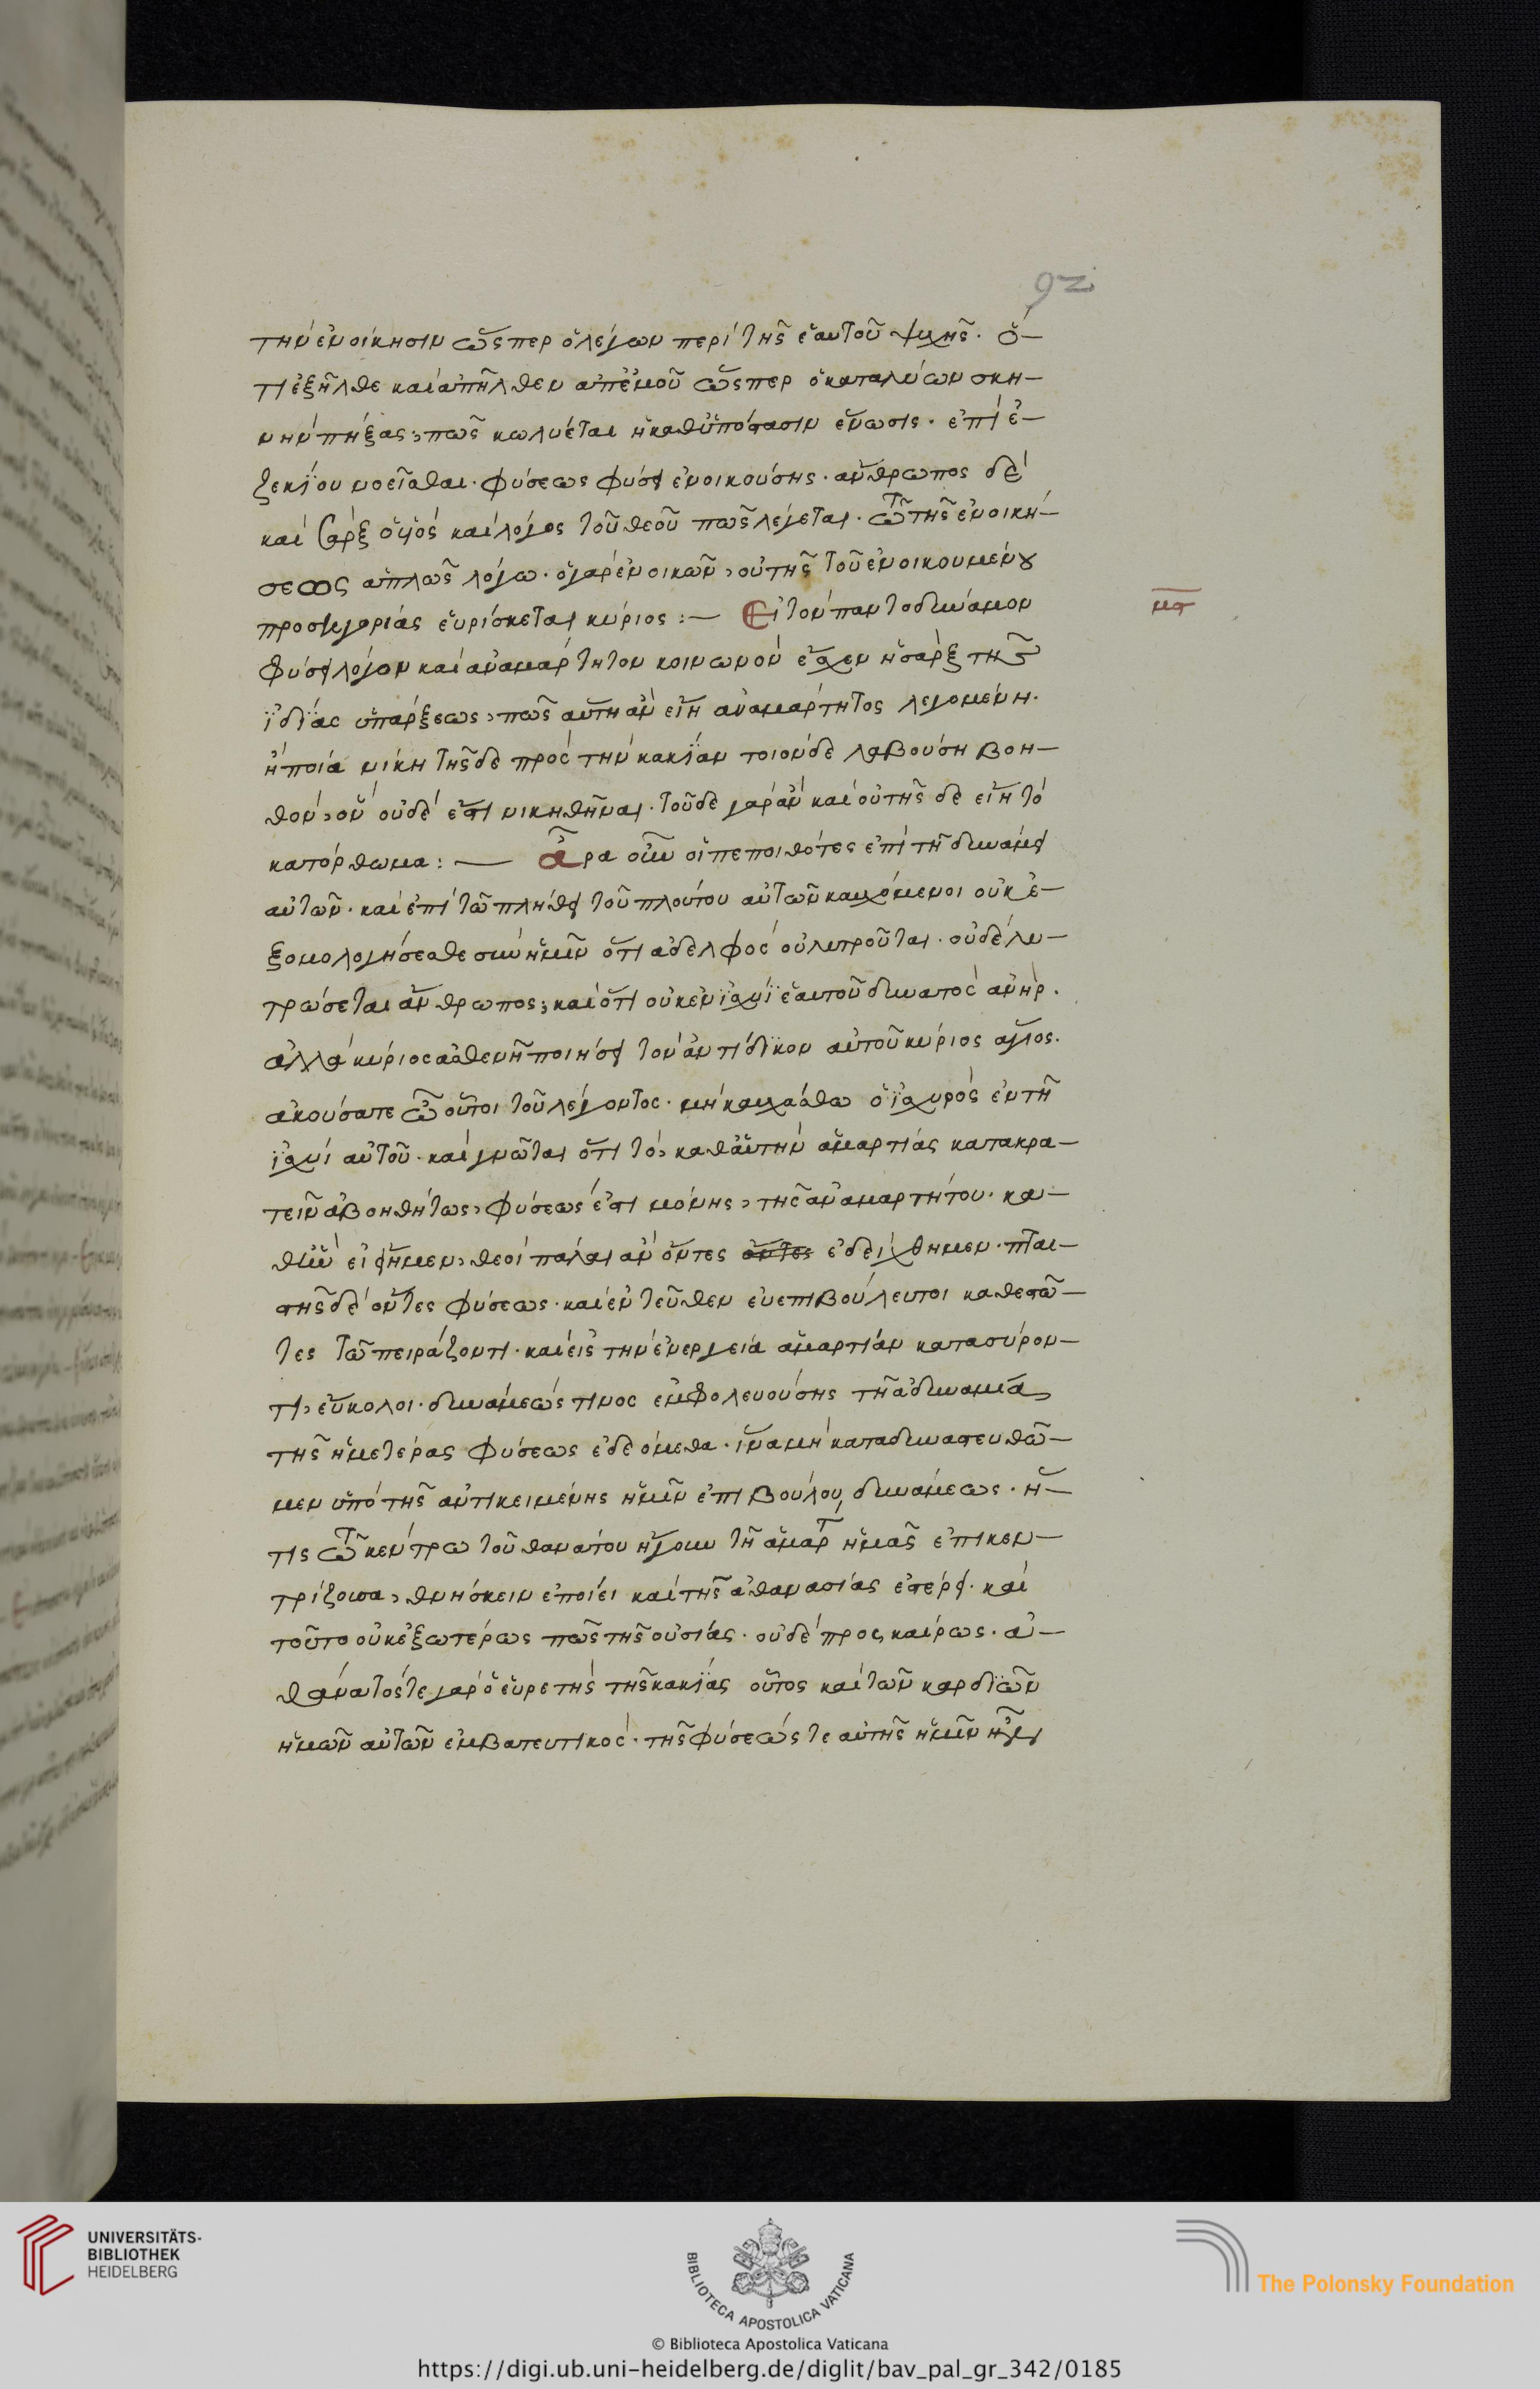 92
τὴν ἐνοίκησιν ὥσπερ ὁ λέγων περὶ τῆς ἑαυτοῦ ψυχῆς. ὅ–
τι ἐξῆλθε καὶ ἀπῆλθεν ἀπ' ἐμοῦ ὥσπερ ὁ καταλύων σκη–
νὴν πήξας, πῶς κωλύεται ἡ καθ' ὑπόστασιν ἕνωσις. ἐπὶ ἐ–
ζεκίου νοεῖσθαι. φύσεως φύσει ἐνοικούσης. ἄνθρωπος δὲ
καὶ σὰρξ ὁ υἱὸς καὶ λόγος τοῦ θεοῦ πῶς λέγεται. τῶ τῆς ἐνοική–
σεως ἁπλῶς λόγω. ὁ γὰρ ἐνοικῶν, οὐ τῆς τοῦ ἐνοικουμένου
προσηγορίας εὑρίσκεται κύριος :— Εἰ τὸν παντοδύναμον
μα
φύσει λόγον καὶ ἀναμάρτητον κοινωνὸν ἔσχεν ἡ σὰρξ τῆς
ἰδίας ὑπάρξεως, πῶς αὕτη ἂν εἴη ἀναμάρτητος λεγομένη.
ἢ ποία νίκη τῆσδε πρὸς τὴν κακίαν τοιόνδε λαβούση βοη–
θὸν, ὃν οὐδὲ ἔστι νικηθῆναι. τοῦδε γὰρ ἂν καὶ οὐ τῆσδε εἴη τὸ
κατόρθωμα :— Ἆρα οὖν οἱ πεποιθότες ἐπὶ τῆ δυνάμει
αὐτῶν. καὶ ἐπὶ τῶ πλήθει τοῦ πλούτου αὐτῶν καυχόμενοι οὐκ ἐ–
ξομολογήσεσθε σὺν ἡμῖν ὅτι ἀδελφὸς οὐ λυτροῦται. οὐδὲ λυ–
τρώσεται ἄνθρωπος; καὶ ὅτι οὐκ ἐν ἰσχύϊ ἑαυτοῦ δυνατὸς ἀνήρ.
ἀλλὰ κύριος ἀσθενῆ ποιήσει τὸν ἀντίδικον αὐτοῦ κύριος ἅγιος.
ἀκούσατε ὦ οὗτοι τοῦ λέγοντος. μὴ καυχάσθω ὁ ἰσχυρὸς ἐν τῆ
ἰσχύι αὐτοῦ. καὶ γνῶται ὅτι τὸ, καθ' αὑτὴν ἁμαρτίας κατακρα–
τεῖν ἀβοηθήτως, φύσεως ἐστι μόνης, τῆς ἀναμαρτήτου. κα–
θ' ἣν εἰ ἦμεν, θεοὶ πάλαι ἂν ὄντες ὄντες ἐδείχθημεν. πται–
στῆς δὲ ὄντες φύσεως. καὶ ἐντεῦθεν εὐεπιβούλευτοι καθεστῶ–
τες τῶ πειράζοντι. καὶ εἰς τὴν ἐνεργεία ἁμαρτίαν κατασύρον–
τι, εὔκολοι. δυνάμεώς τινος ἐμφολευούσης τῆ ἀδυναμία
τῆς ἡμετέρας φύσεως ἐδεόμεθα. ἵνα μὴ καταδυναστευθῶ–
μεν ὑπὸ τῆς ἀντικειμένης ἡμῖν ἐπιβούλου δυνάμεως. ἥ–
τις τῶ κέντρω τοῦ θανάτου ἤγουν τῆ ἁμαρτ ἡμᾶς ἐπικεν–
τρίζουσα, θνήσκειν ἐποίει καὶ τῆς ἀθανασίας ἐστέρει. καὶ
τοῦτο οὐκ ἐξωτέρως πῶς τῆς οὐσίας. οὐδὲ προςκαίρως. ἀ–
θάνατός τε γὰρ ὁ εὑρετὴς τῆς κακίας οὗτος καὶ τῶν καρδιῶν
ἡμῶν αὐτῶν ἐμβατευτικὸς. τῆς φύσεώς τε αὐτῆς ἡμῖν
UNIVERSITÄTS-
BIBLIOTHEK
HEIDELBERG
BIBLIOTECA APOSTOLICA VATICANA
© Biblioteca Apostolica Vaticana
The Polonsky Foundation
https://digi.ub.uni-heidelberg.de/diglit/bav_pal_gr_342/0185